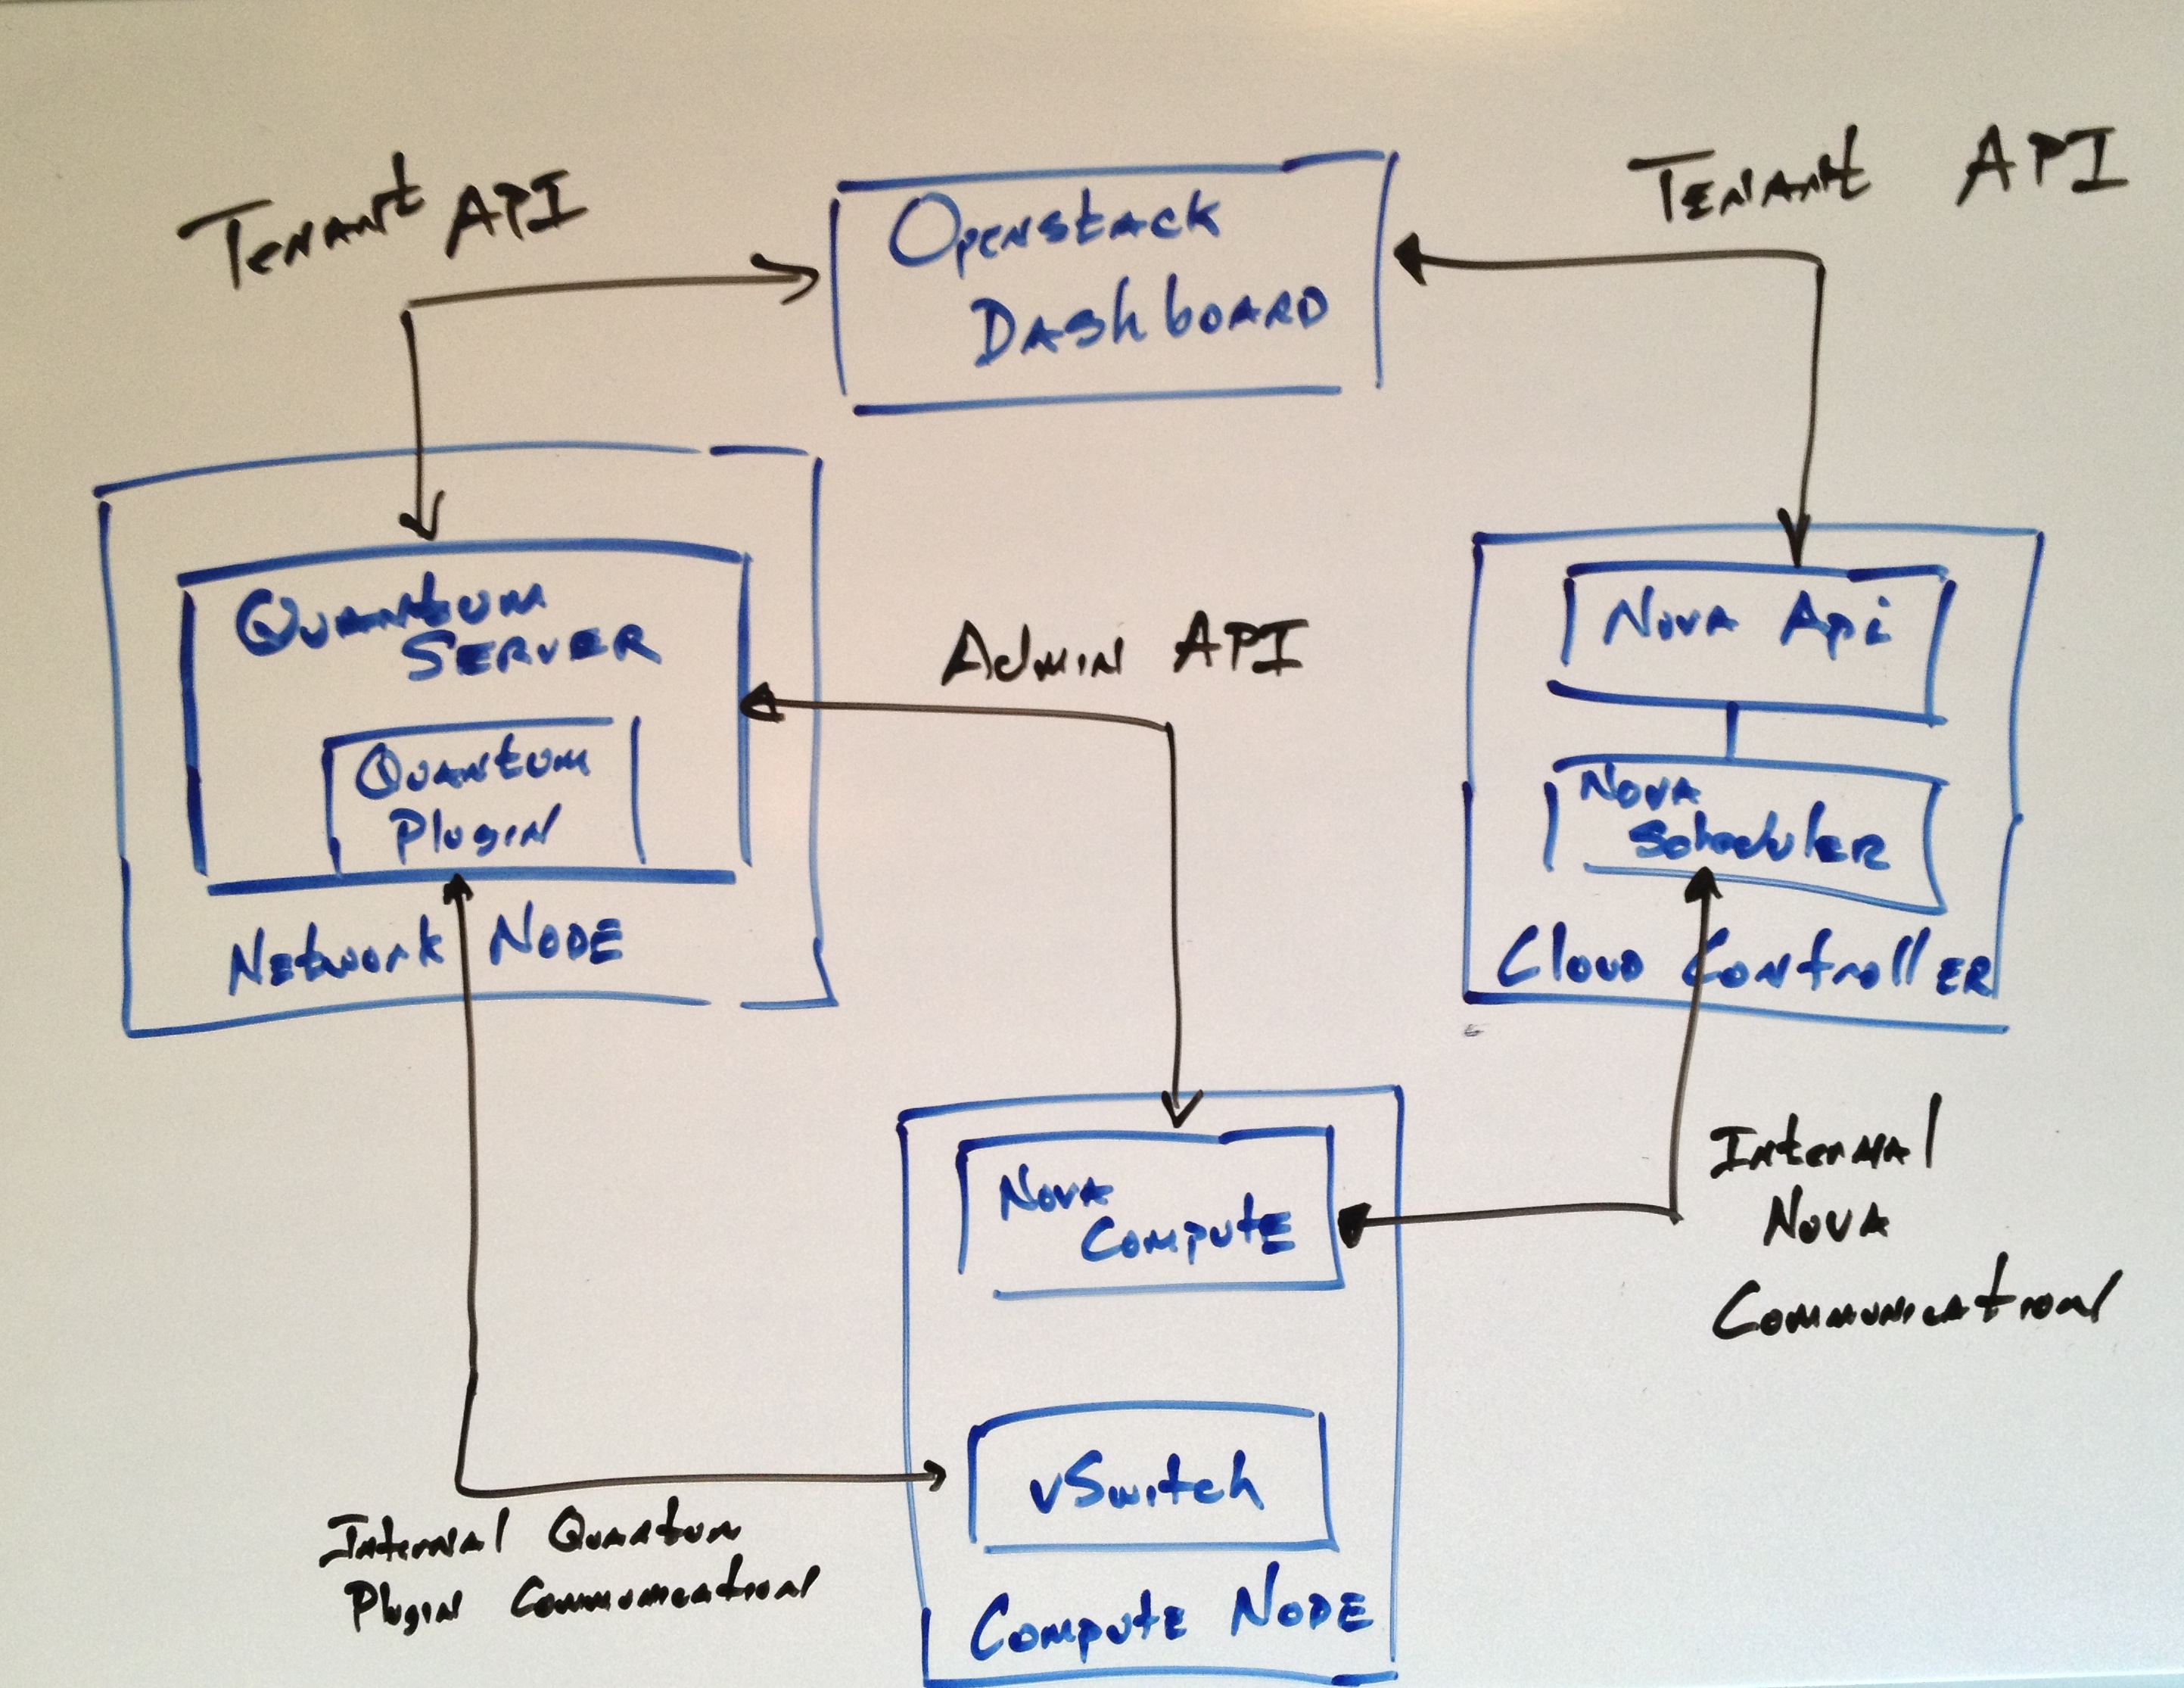 Tenant API
Openstack
Dashboard
Tenant API
Quantum
Server
Quantum
Plugin
Network Node
Admin API
Nova Api
Nova
Scheduler
Cloud Controller
Nova
Compute
vSwitch
Compute Node
Internal
Nova
Communication
Internal Quantum
Plugin Communication